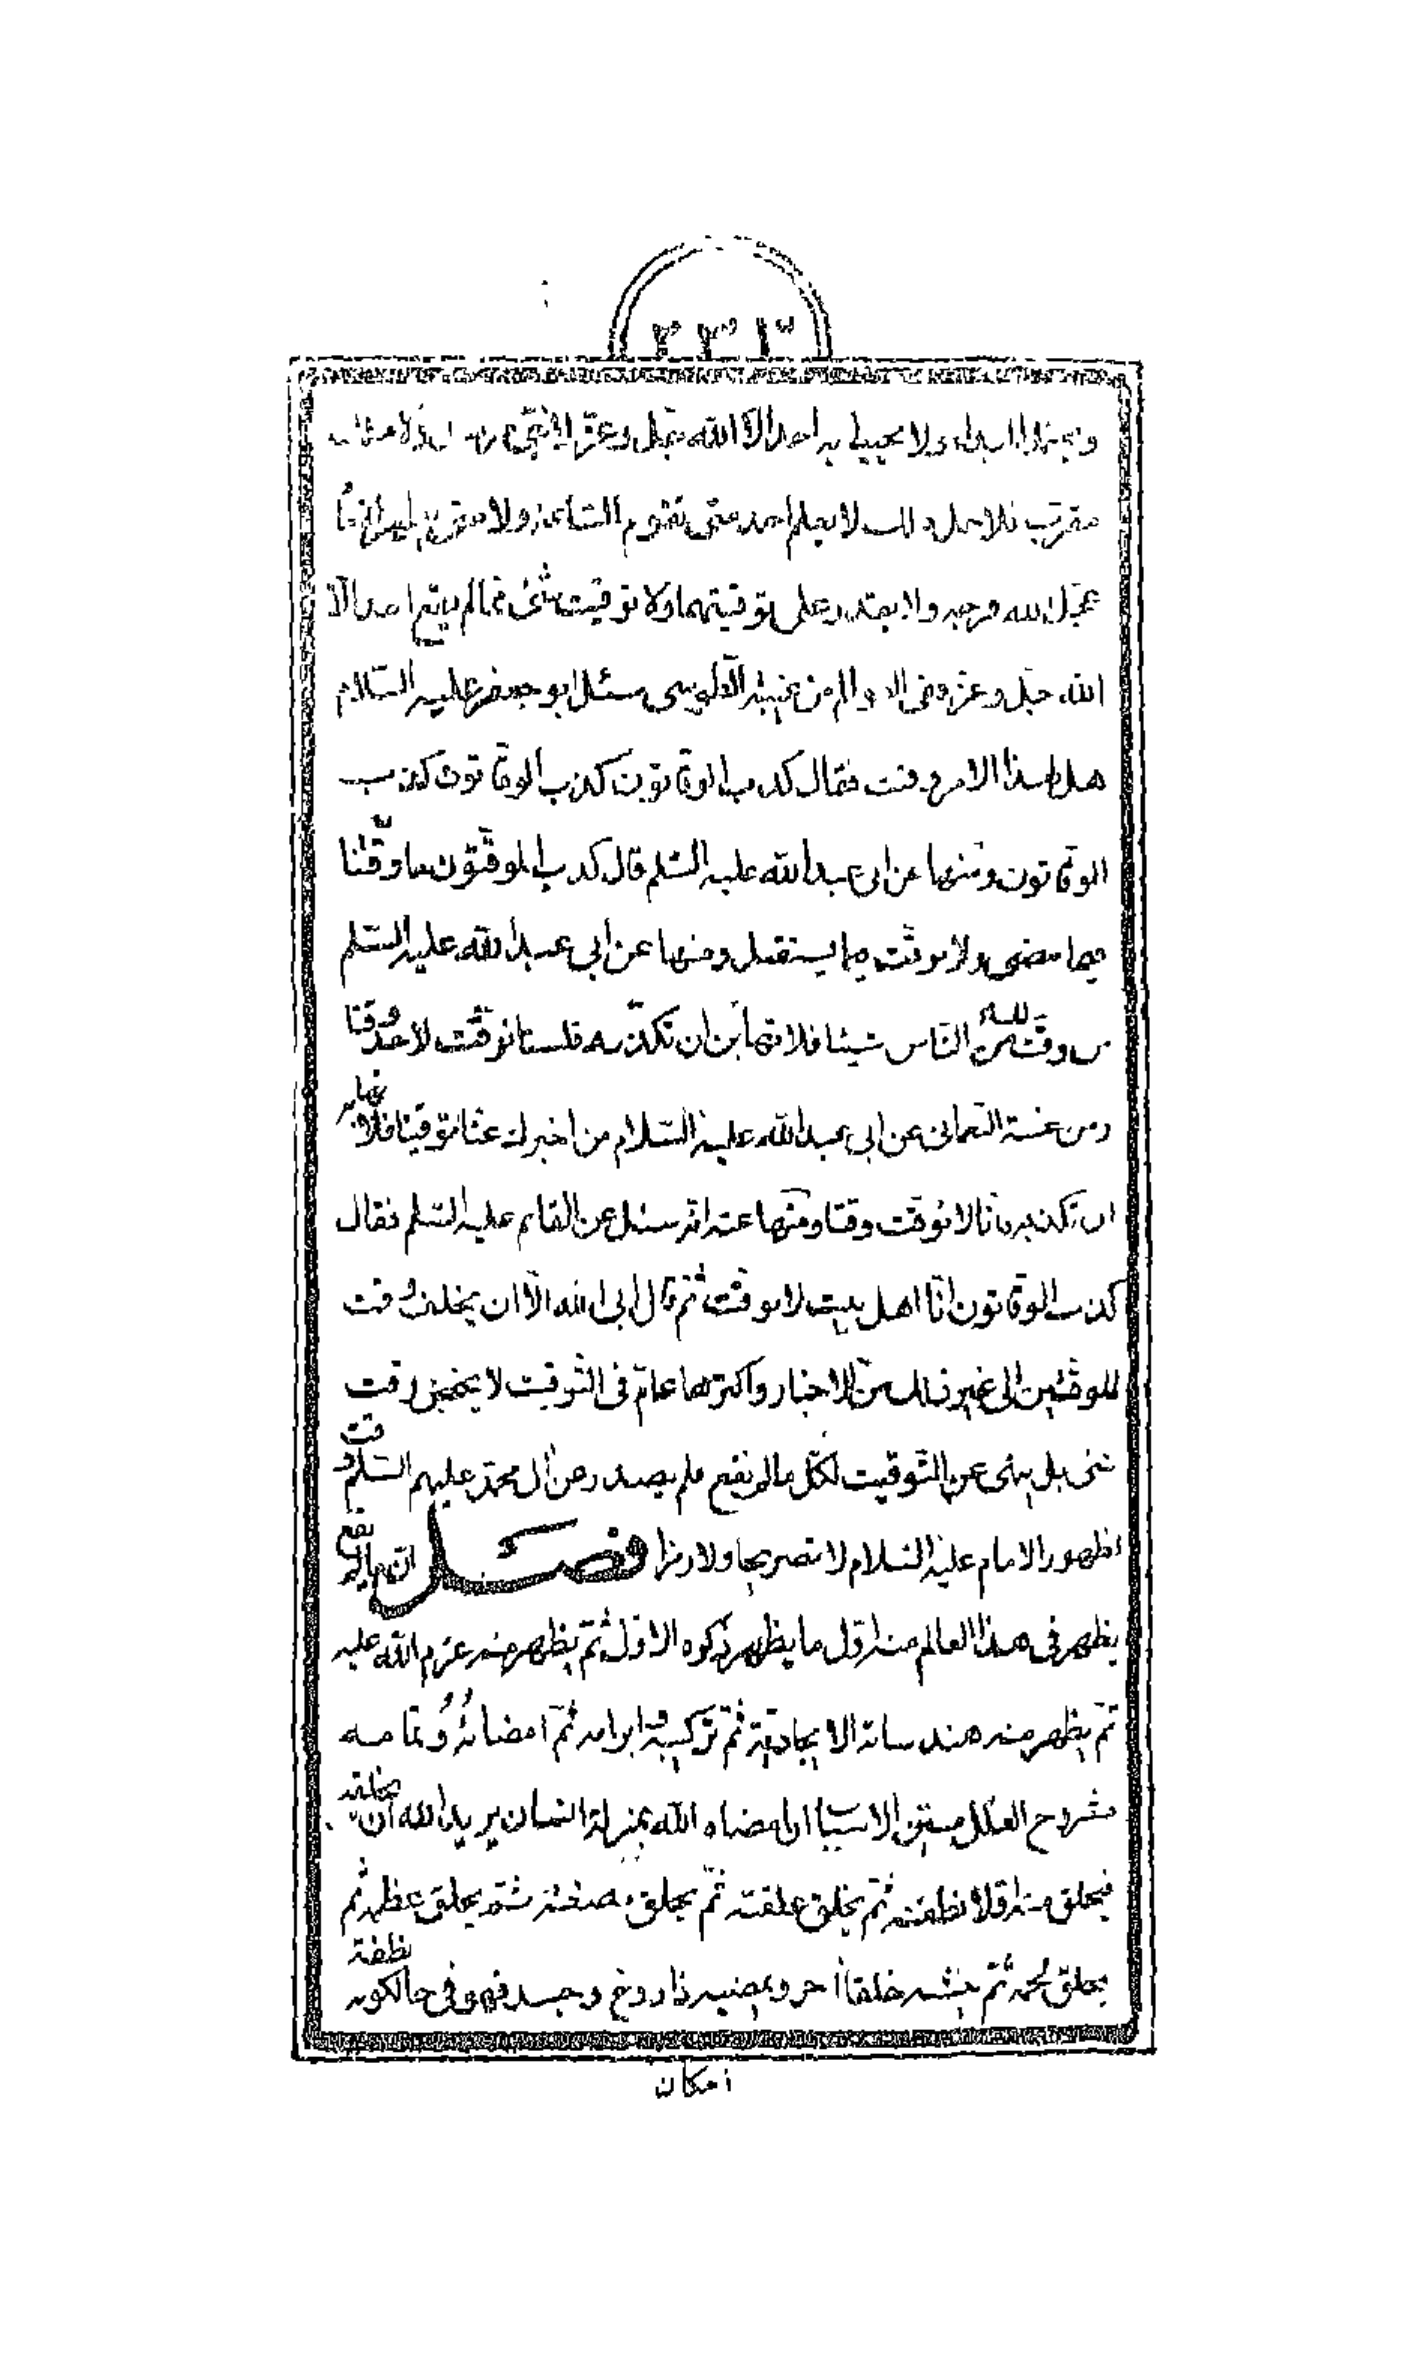 ٢٣٣
ولا يحيط به احد الا الله جل وعز
مقرب فلاجل ذلك لا يعلم احد متى تقوم الساعة ولا متى
عجل الله فرجه ولا يقدر على توقيتهما ولا توقيت شئ مما لم يقع احد الا
الله جل وعز وفى العوالم من غيبة الطوسى سئل ابو جعفر عليه السلام
هل لهذا الامر وقت فقال كذب الوقاتون كذب الوقاتون كذب
الوقاتون ومنها عن ابى عبد الله عليه السلم قال كذب الموقتون ما وقتنا
فيما مضى ولا نوقت فيما يستقبل ومنها عن ابى عبد الله عليه السلم
من وقت لك من الناس شيئا فلا تهابن ان تكذبه فلسنا نوقت لاحد وقتا
ومن غيبة النعمانى عن ابى عبد الله عليه السلام من اخبرك عنا توقيتا فلا تهابه
ان تكذبه فانا لا نوقت وقتا ومنها عنه انه سئل عن القائم عليه السلم فقال
كذب الوقاتون انا اهل بيت لا نوقت ثم قال ابى الله الا ان يخلف وقت
الموقتين الى غير ذلك من الاخبار واكثرها عام فى التوقيت لا يختص بوقت
شئ بل ينهى عن التوقيت لكل ما لم يقع فلم يصدر من آل محمد عليهم السلام وقت
لظهور الامام عليه السلام لا تصريحا ولا رمزا فصل ان ما لم يقع
يظهر فى هذا العالم منه اول ما يظهر ذكره الاول ثم يظهر منه عزم الله عليه
ثم يظهر منه هندسته الايجادية ثم تركيبه وابرامه ثم امضائه وتمامه
مشروح العلل مبين الاسباب ان امضاه الله بمنزلة انسان يريد الله ان يخلقه
فيخلق منه اولا نطفته ثم يخلق علقته ثم يخلق مضغته ثم يخلق عظمه ثم
يخلق لحمه ثم ينشئه خلقا آخر ويمضيه ذا روح وجسد فهو فى حال كونه نطفة
امكان